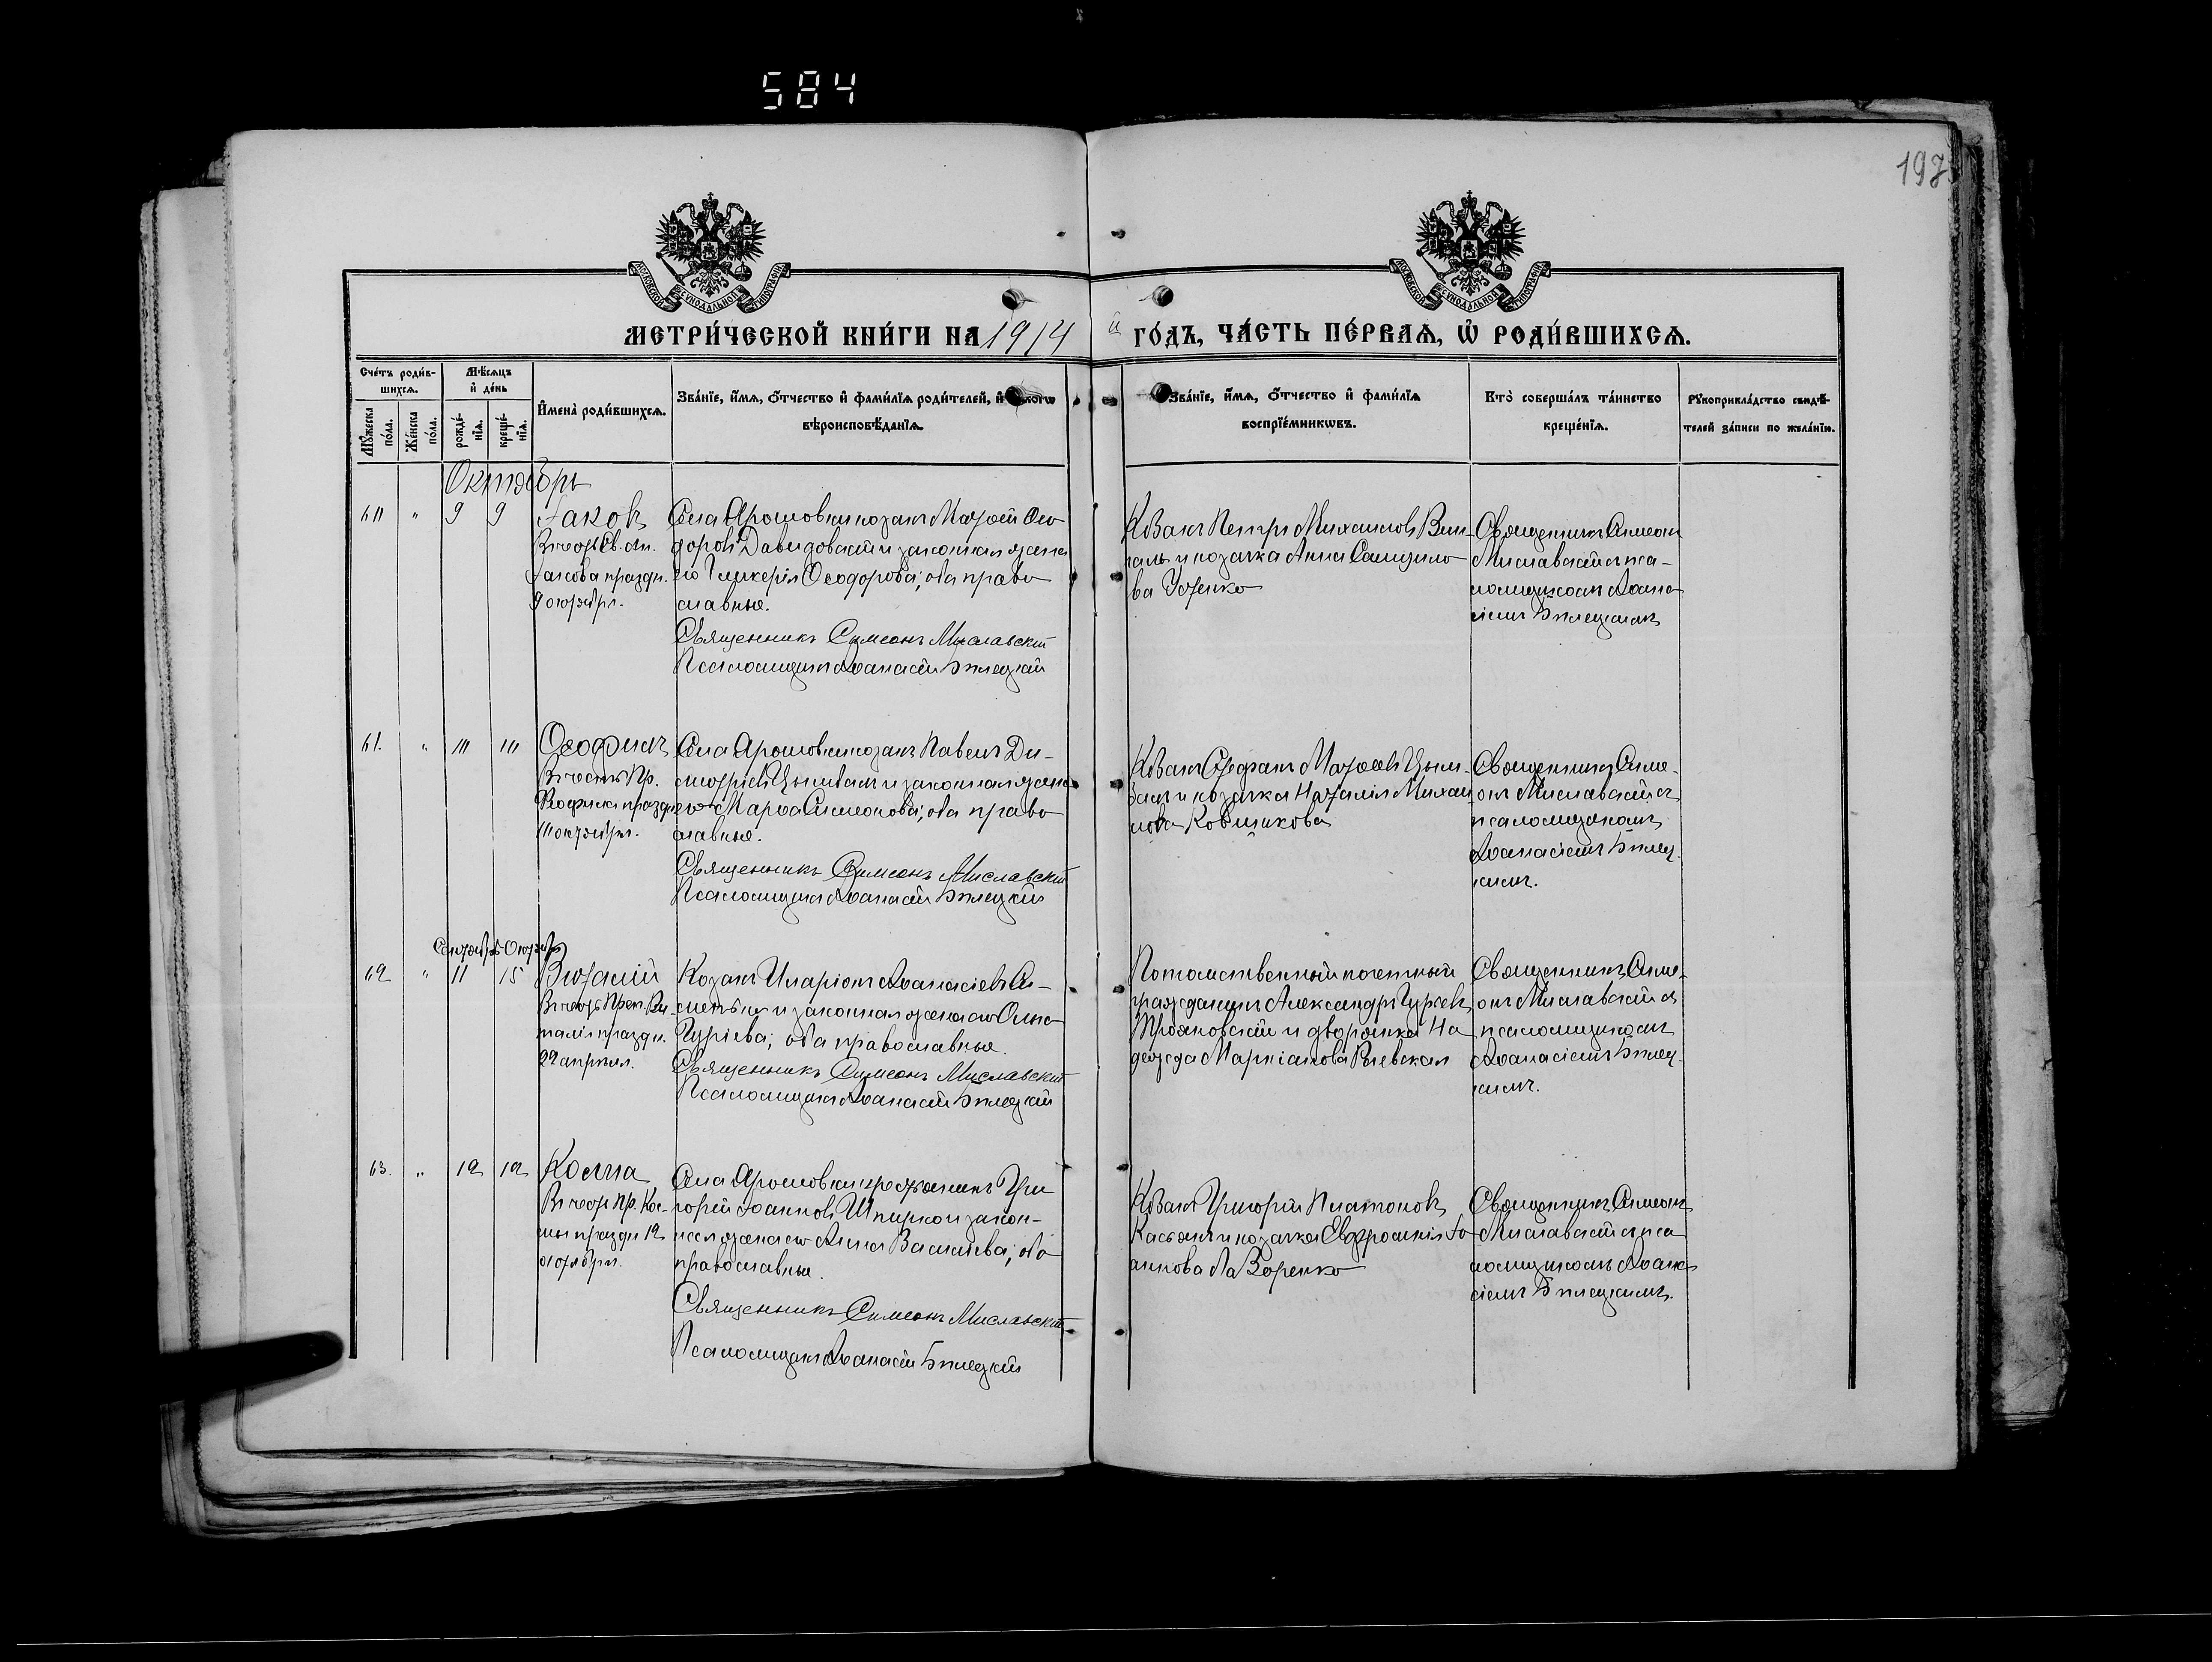 584
197
МОСКОВСКОЙ СѴНОДАЛЬНОЙ ТИПОГРАФІИ
МОСКОВСКОЙ СѴНОДАЛЬНОЙ ТИПОГРАФІИ
МЕТРИ́ЧЕСКОЙ КНИ́ГИ НА 1914 й ГО́ДЪ, ЧА́СТЬ ПЕ́РВАѦ, Ѡ҆ РОДИ́ВШИХСѦ.
Сче́тъ роди́в-
шихсѧ.
Мѣ́сѧцъ
и҆ де́нь
Мꙋ́жеска
по́ла.
Же́нска
по́ла.
рожде́-
нїѧ.
креще́-
нїѧ.
И҆мена̀ роди́вшихсѧ.
Зва́нїе, и҆́мѧ, о҆́тчество и҆ фами́лїѧ роди́телей, и҆
вѣроисповѣ́данїѧ.
Зва́нїе, и҆́мѧ, о҆́тчество и҆ фами́лїѧ
воспрїе́мникѡвъ.
Кто̀ соверша́лъ та́инство
креще́нїѧ.
Рꙋкоприкла́дство свидѣ́-
телей за́писи по жела́нїю.
Октябрь
60 " 9 9
Іаковъ
Въ честь Св. Ап.
Іакова праздн.
9 октября.
Села Ярошовки козакъ Матѳей Ѳео-
доровъ Давидовскій и законная жена
его Гликерія Ѳеодорова; оба право
славные.
Священникъ Симеонъ Миславский
Псаломщикъ Аѳанасій Бѣлецкій
Козакъ Петръ Михаиловъ
и козачка Анна
ва
Священникъ Симеонъ
Миславскій съ пса-
ломщикомъ Аѳана
сіемъ Бѣлецкимъ
61. " 10 10
Ѳеофилъ
Въ честь Пр.
Ѳеофила праздн
10 октября.
Села Ярошовки козакъ Павелъ Ди-
митріевъ Цымбалъ и законная жена
его Марѳа Симеонова; оба право
славные.
Священникъ Симеонъ Миславский
Псаломщикъ Аѳанасій Бѣлецкій
Козакъ Стефанъ Матѳеевъ Цым-
балъ и козачка Наталія Михаи
лова
Священникъ Симе-
онъ Миславскій съ
псаломщикомъ
Аѳанасіемъ Бѣлец-
кимъ.
Сентябрь Октябрь
62 " 11 15
Виталій
Въ честь Преп. Ви-
талія праздн.
22 апрѣля.
Козакъ Иларіонъ Аѳанасіевъ
и законная жена его Ольга
Гуріева; оба православные.
Священникъ Симеонъ Миславский
Псаломщикъ Аѳанасій Бѣлецкій
Потомственный почетный
гражданинъ Александръ Гуріевъ
Трояновскій и дворянка На
дежда Маркіанова
Священникъ Симе-
онъ Миславскій съ
псаломщикомъ
Аѳанасіемъ Бѣлец-
кимъ.
63. " 12 12
Косма
Въ честь Пр. Кос-
мы праздн 12
октября.
Села Ярошовки крестьянинъ Гри
горій Іоанновъ Шпирко и закон-
ная жена его Анна Василіева; оба
православные.
Священникъ Симеонъ Миславский
Псаломщикъ Аѳанасій Бѣлецкій
Козакъ Григорій Платоновъ
Касьянъ и козачка Евфросинія Іо
аннова Лазоренко
Священникъ Симеонъ
Миславскій съ пса
ломщикомъ Аѳана
сіемъ Бѣлецкимъ.